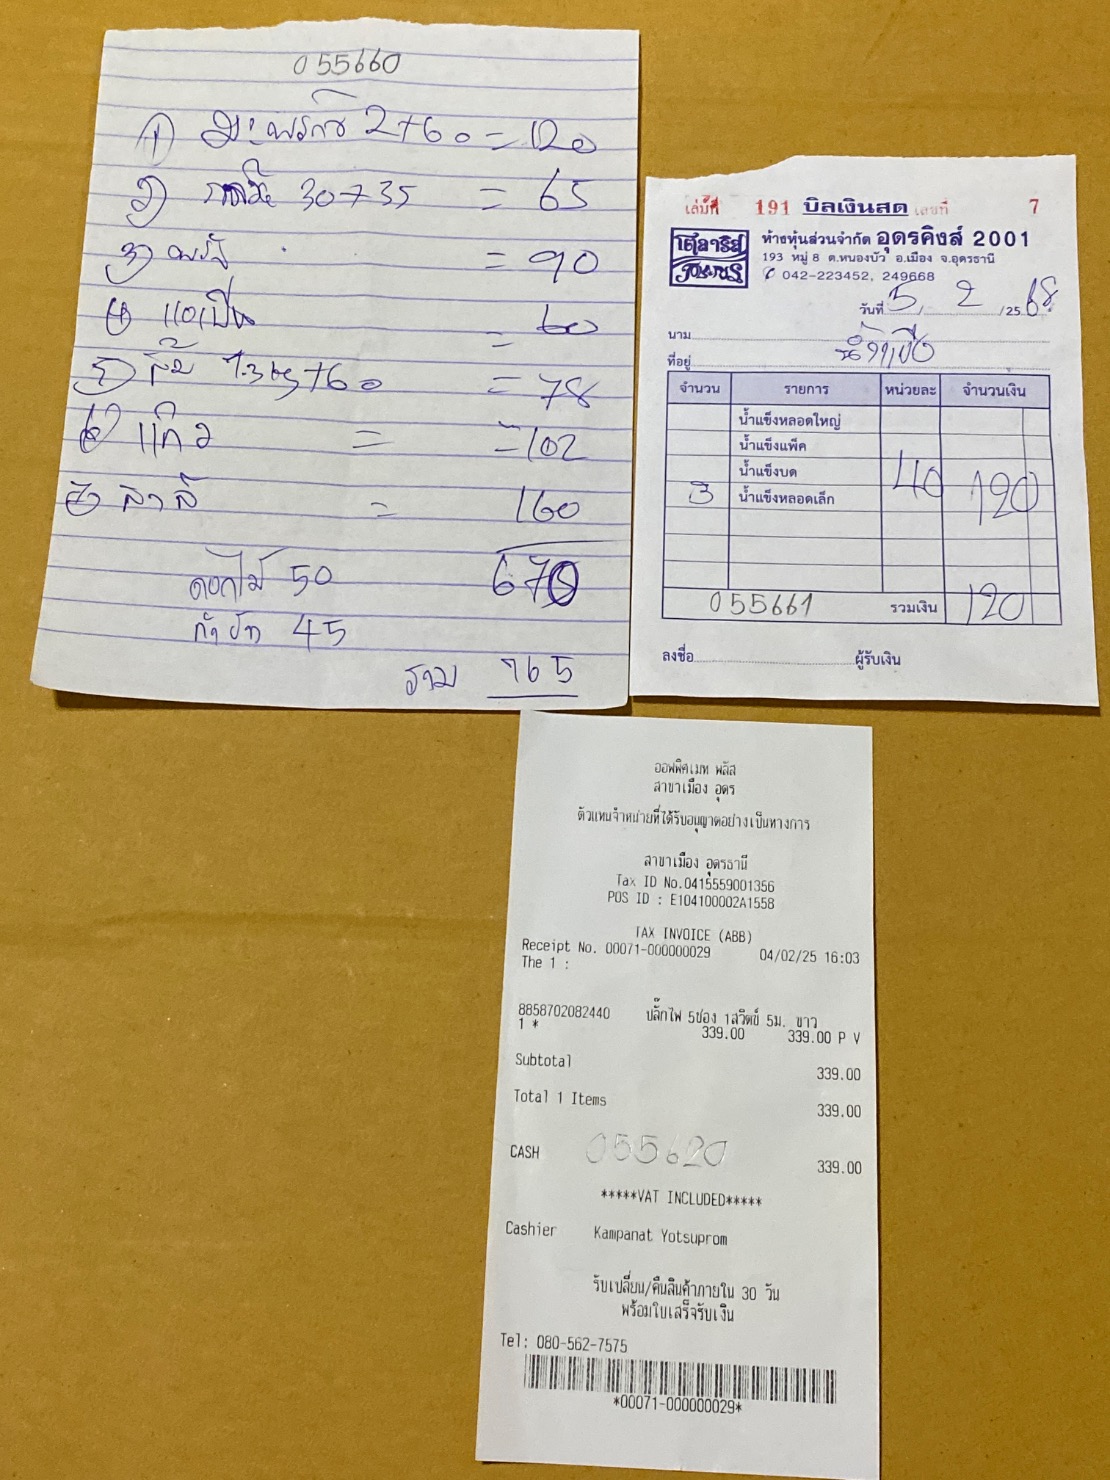 055660
1) มะพร้าว 2+60 = 120
2) 30+35 = 65
3) ฝรั่ง = 90
4) แอปเปิ้ล = 60
5) ส้ม 1.3 kg+60 = 78
6) แก้ว = 102
7) สาลี่ = 160
670
ดอกไม้ 50
45
รวม 765
เล่มที่ 191 บิลเงินสด เลขที่ 7
โตลาริส
ห้างหุ้นส่วนจำกัด อุดรคิงส์ 2001
193 หมู่ 8 ต.หนองบัว อ.เมือง จ.อุดรธานี
042-223452, 249668
วันที่ 5 / 2 / 2568
นาม
ที่อยู่
จำนวน รายการ หน่วยละ จำนวนเงิน
น้ำแข็งหลอดใหญ่
น้ำแข็งแพ็ค
น้ำแข็งบด
3 น้ำแข็งหลอดเล็ก 40 120
055661 รวมเงิน 120
ลงชื่อ ผู้รับเงิน
ออฟฟิศเมท พลัส
สาขาเมือง อุดร
ตัวแทนจำหน่ายที่ได้รับอนุญาตอย่างเป็นทางการ
สาขาเมือง อุดรธานี
Tax ID No.0415559001356
POS ID : E104100002A1558
TAX INVOICE (ABB)
Receipt No. 00071-000000029 04/02/25 16:03
The 1 :
8858702082440 ปลั๊กไฟ 5ช่อง 1สวิตช์ 5ม. ขาว
1 * 339.00 339.00 P V
Subtotal 339.00
Total 1 Items 339.00
CASH 055620 339.00
*****VAT INCLUDED*****
Cashier Kampanat Yotsuprom
รับเปลี่ยน/คืนสินค้าภายใน 30 วัน
พร้อมใบเสร็จรับเงิน
Tel: 080-562-7575
*00071-000000029*